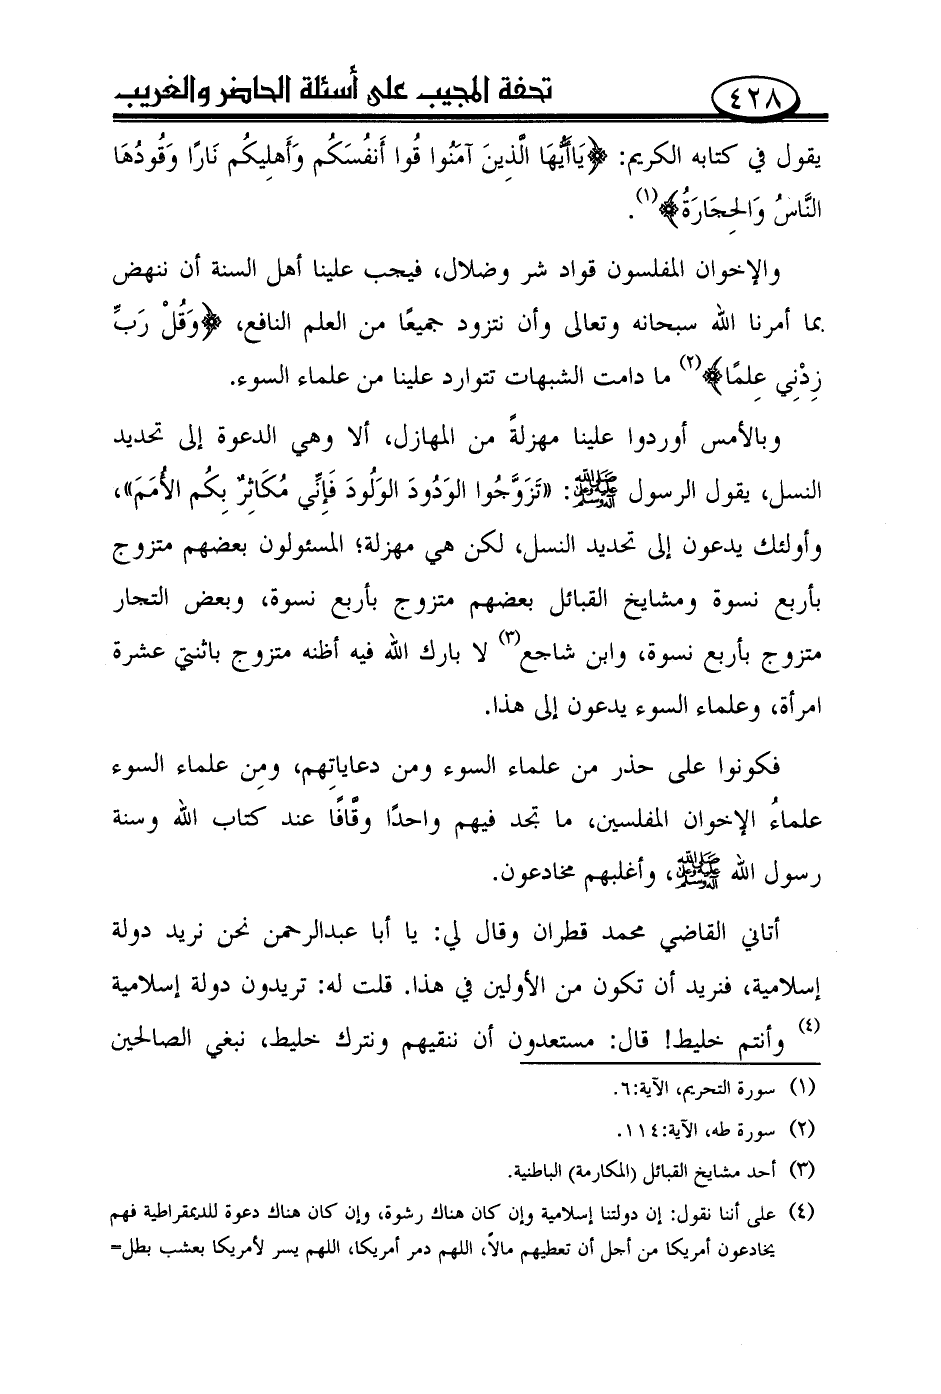 ٤٢٨ تحفة المجيب على أسئلة الحاضر والغريب
يقول في كتابه الكريم: ﴿يَاأَيُّهَا الَّذِينَ آمَنُوا قُوا أَنفُسَكُم وَأَهلِيكُم نَارًا وَقُودُهَا
النَّاسُ وَالحِجَارَةُ﴾(١).
والإخوان المفلسون قواد شر وضلال، فيجب علينا أهل السنة أن ننهض
بما أمرنا الله سبحانه وتعالى وأن نتزود جميعًا من العلم النافع، ﴿وَقُلْ رَبِّ
زِدْنِي عِلمًا﴾(٢) ما دامت الشبهات تتوارد علينا من علماء السوء.
وبالأمس أوردوا علينا مهزلةً من المهازل، ألا وهي الدعوة إلى تحديد
النسل، يقول الرسول ﷺ: «تَزَوَّجُوا الوَدُودَ الوَلُودَ فَإِنِّي مُكَاثِرٌ بِكُم الأُمَمَ»،
وأولئك يدعون إلى تحديد النسل، لكن هي مهزلة؛ المسئولون بعضهم متزوج
بأربع نسوة ومشايخ القبائل بعضهم متزوج بأربع نسوة، وبعض التجار
متزوج بأربع نسوة، وابن شاجع(٣) لا بارك الله فيه أظنه متزوج باثنتي عشرة
امرأة، وعلماء السوء يدعون إلى هذا.
فكونوا على حذر من علماء السوء ومن دعاياتِهم، ومِن علماء السوء
علماءُ الإخوان المفلسين، ما تجد فيهم واحدًا وقَّافًا عند كتاب الله وسنة
رسول الله ﷺ، وأغلبهم مخادعون.
أتاني القاضي محمد قطران وقال لي: يا أبا عبدالرحمن نحن نريد دولة
إسلامية، فنريد أن تكون من الأولين في هذا. قلت له: تريدون دولة إسلامية
(٤) وأنتم خليط! قال: مستعدون أن ننقيهم ونترك خليط، نبغي الصالحين
(١) سورة التحريم، الآية:٦.
(٢) سورة طه، الآية:١١٤.
(٣) أحد مشايخ القبائل (المكارمة) الباطنية.
(٤) على أننا نقول: إن دولتنا إسلامية وإن كان هناك رشوة، وإن كان هناك دعوة للديمقراطية فهم
يخادعون أمريكا من أجل أن تعطيهم مالاً، اللهم دمر أمريكا، اللهم يسر لأمريكا بعشب بطل=